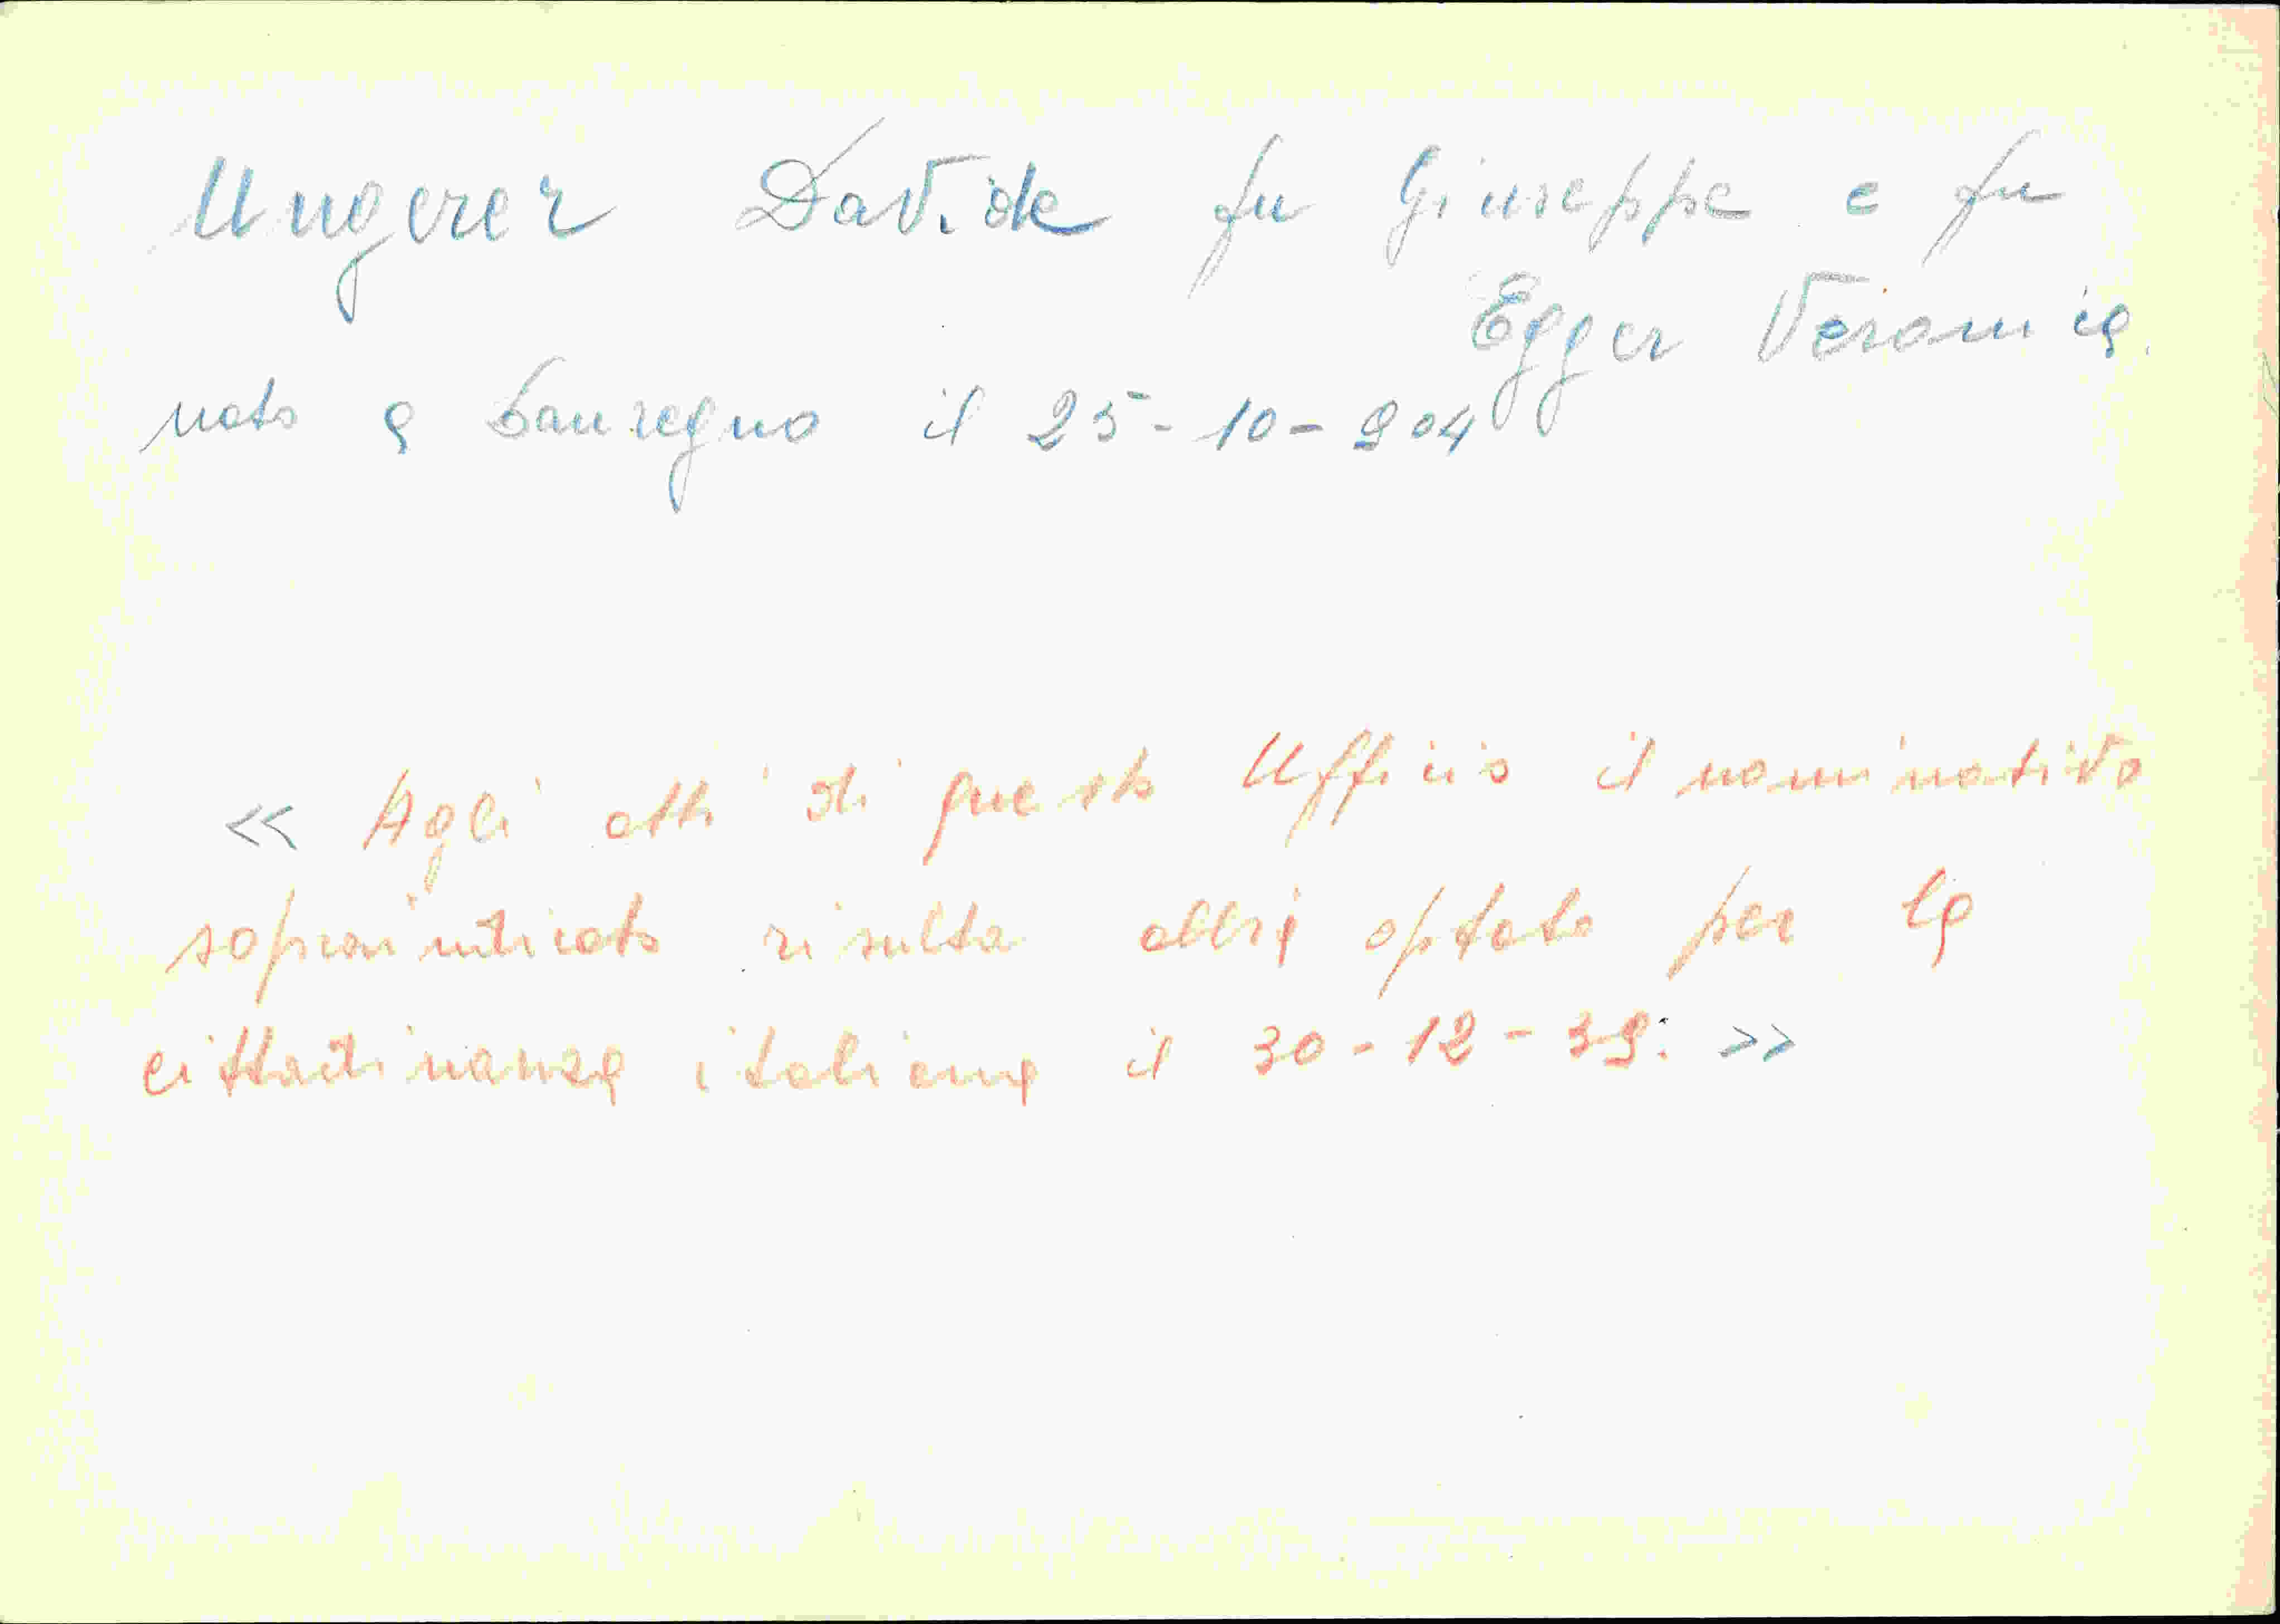 Ungerer Davide fu Giuseppe e fu
Egger Veronica
nato a Lauregno il 25-10-904
<< Agli atti di questo Ufficio il nominativo
sopraindicato risulta abbia optato per la
cittadinanza italiana il 30-12-39. >>